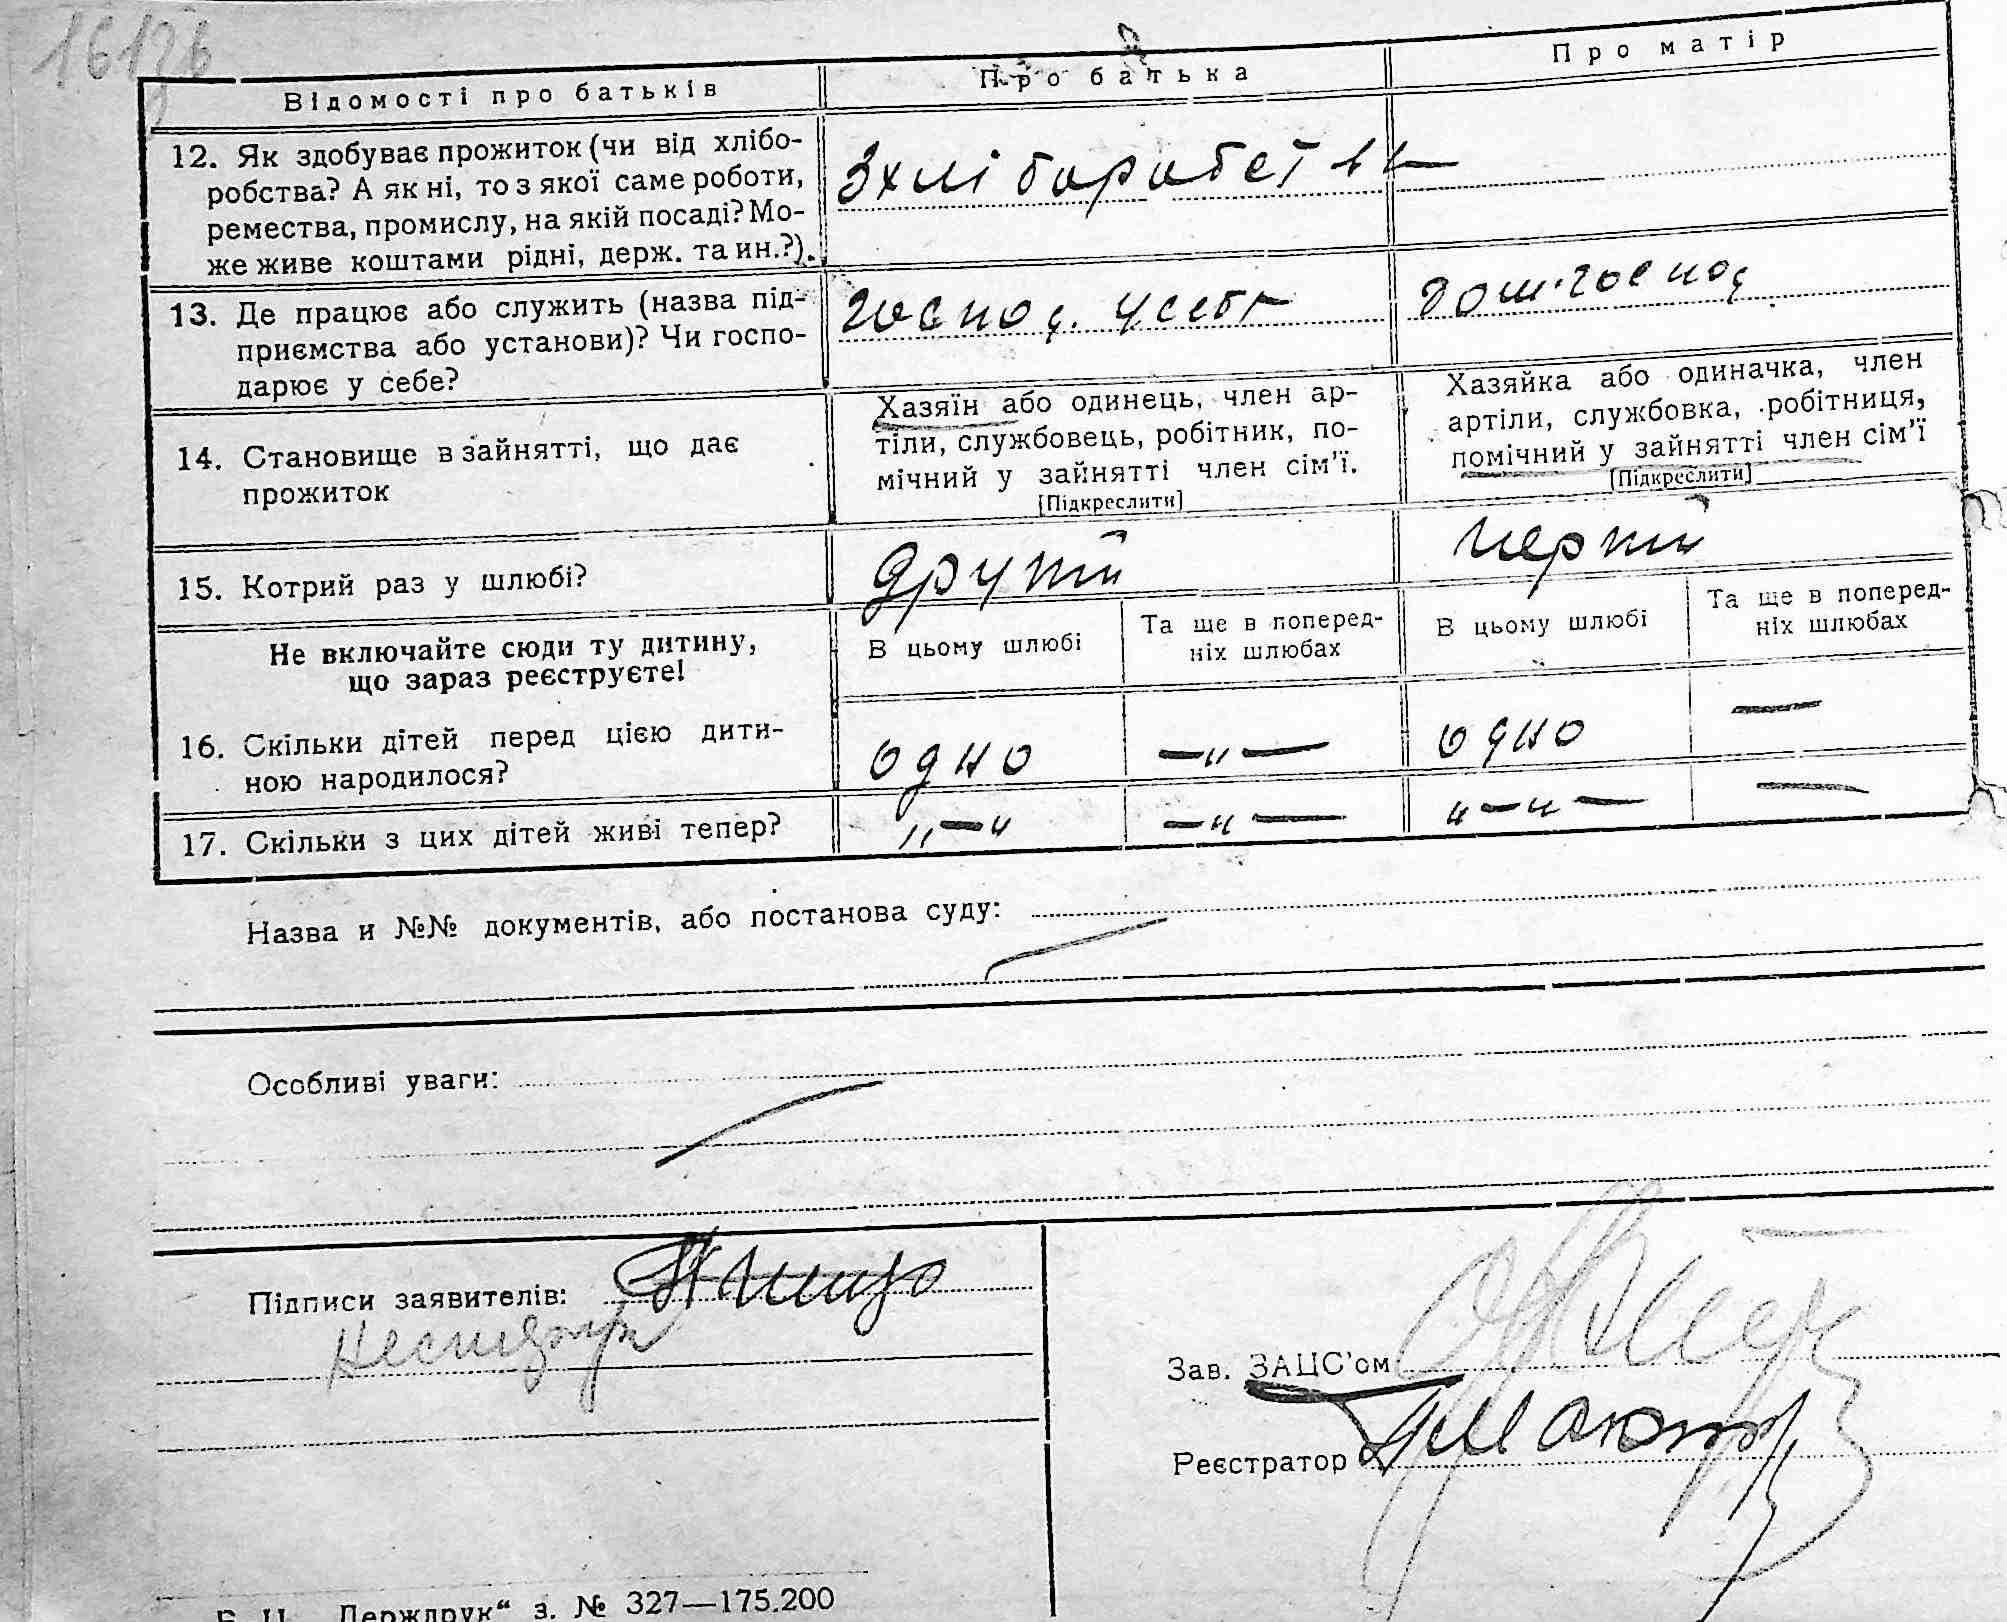 Відомості про батьків
Про батька
Про матір
12. Як здобуває прожиток (чи від хлібо-
робства? А як ні, то з якої саме роботи,
ремества, промислу, на якій посаді? Мо-
же живе коштами рідні, держ. та ин.?).
Зхліборобства
13. Де працює або служить (назва під-
приємства або установи)? Чи госпо-
дарює у себе?
господ. усебе
дом.господ
14. Становище в зайнятті, що дає
прожиток
Хазяїн або одинець, член ар-
тіли, службовець, робітник, по-
мічний у зайнятті член сім'ї.
[Підкреслити]
Хазяйка або одиначка, член
артіли, службовка, робітниця,
помічний у зайнятті член сім'ї
[Підкреслити]
15. Котрий раз у шлюбі?
другий
перший
Не включайте сюди ту дитину,
що зараз реєструєте!
В цьому шлюбі
Та ще в поперед-
ніх шлюбах
В цьому шлюбі
Та ще в поперед-
ніх шлюбах
16. Скільки дітей перед цією дити-
ною народилося?
одно
—"—
одно
—
17. Скільки з цих дітей живі тепер?
"—"
—"—
"—"—
—
Назва и №№ документів, або постанова суду:
Особливі уваги:
Підписи заявителів:
Зав. ЗАЦС'ом
Реєстратор
Держдрук" з. № 327—175.200